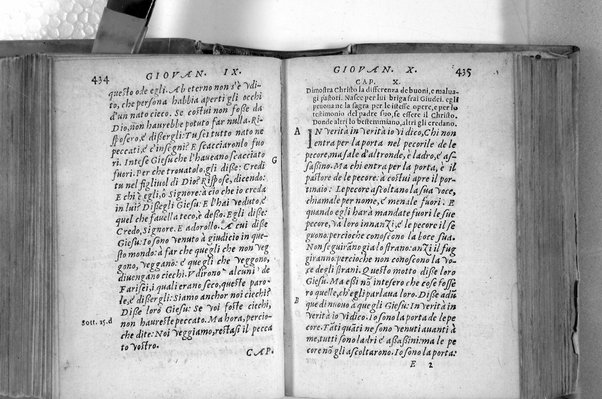 434 GIOVAN. IX.
questo ode egli. Ab eterno non s'è vdi-
to, che persona habbia aperti gli occhi
d'un nato cieco. Se costui non fosse da
Dio, non haurebbe potuto far nulla. Ri-
sposero, & dißergli: Tu sei tutto nato ne
peccati, & c'insegni? E scacciaronlo fuo
ri. Intese Giesu che l'haueano scacciato
fuori. Per che trouatolo, gli diße: Credi
tu nel figliuol di Dio? Rispose, dicendo:
E chi è egli, ò Signore: à cio che io creda
in lui? Dißegli Giesu: E l'hai veduto, e
quel che fauella teco, è deßo. Egli diße:
Credo, Signore. E adorollo. A cui diße
Giesu: Io sono venuto à giudicio in que-
sto mondo: à far che quegli che non veg
gono, veggano: & quegli che veggono,
diuengano ciechi. V dirono alcuni de
Farisei, i quali erano seco, queste paro-
le, & dißergli: Siamo anchor noi ciechi?
Diße loro Giesu: Se voi foste ciechi,
non haureste peccato. Ma hora, percio-
che dite: Noi veggiamo, restasi il pecca
to vostro.
CAP.
G
Sott. 15.d
GIOVAN. X. 435
CAP. X.
Dimostra Christo la differenza de buoni, e malua-
gi pastori. Nasce per lui briga frai Giudei. egli
pruoua ne la sagra per le istesse opere, e per lo
testimonio del padre suo, se essere il Christo.
Donde altri lo bestemmiano, altri gli credano.
A
IN verità in verità io vi dico, Chi non
entra per la porta nel pecorile de le
pecore, ma sale d'altronde, è ladro, & as-
saßino. Ma chi entra per la porta, è il
pastore de le pecore. à costui apre il por-
tinaio: Le pecore ascoltano la sua voce,
chiamale per nome, & menale fuori. E
quando egli harà mandate fuori le sue
pecore, va loro innanzi, & le pecore il se
guono, percioche conoscono la boce sua.
Non seguirano gia lo strano: anzi il fug
giranno, percioche non conoscono la vo-
ce degli strani. Questo motto diße loro
Giesu. Ma eßi non intesero che cose fos-
ro quelle, ch'egli parlaua loro. Diße adun
que di nuouo à quegli Giesu: In verità in
B
verità io vi dico. Io sono la porta de le pe
core. Tati quati ne sono venuti auanti à
me, tutti sono ladri & aßaßini: ma le pe
core nō gli ascoltarono. Io sono la porta:
E 2